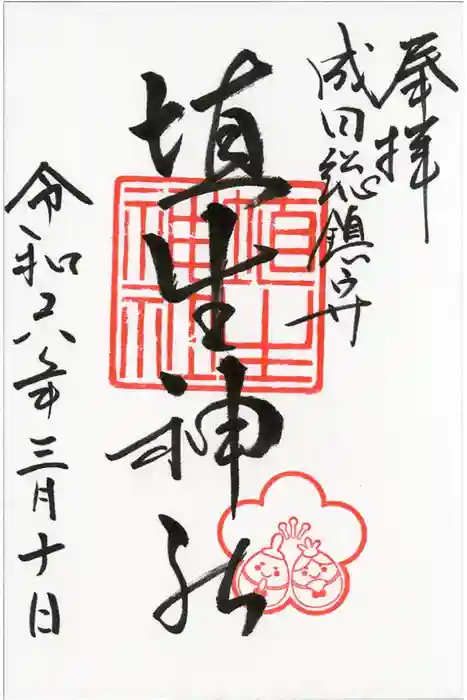 奉拝
成田総鎮守
埴生神社
令和六年三月十日
埴生神社